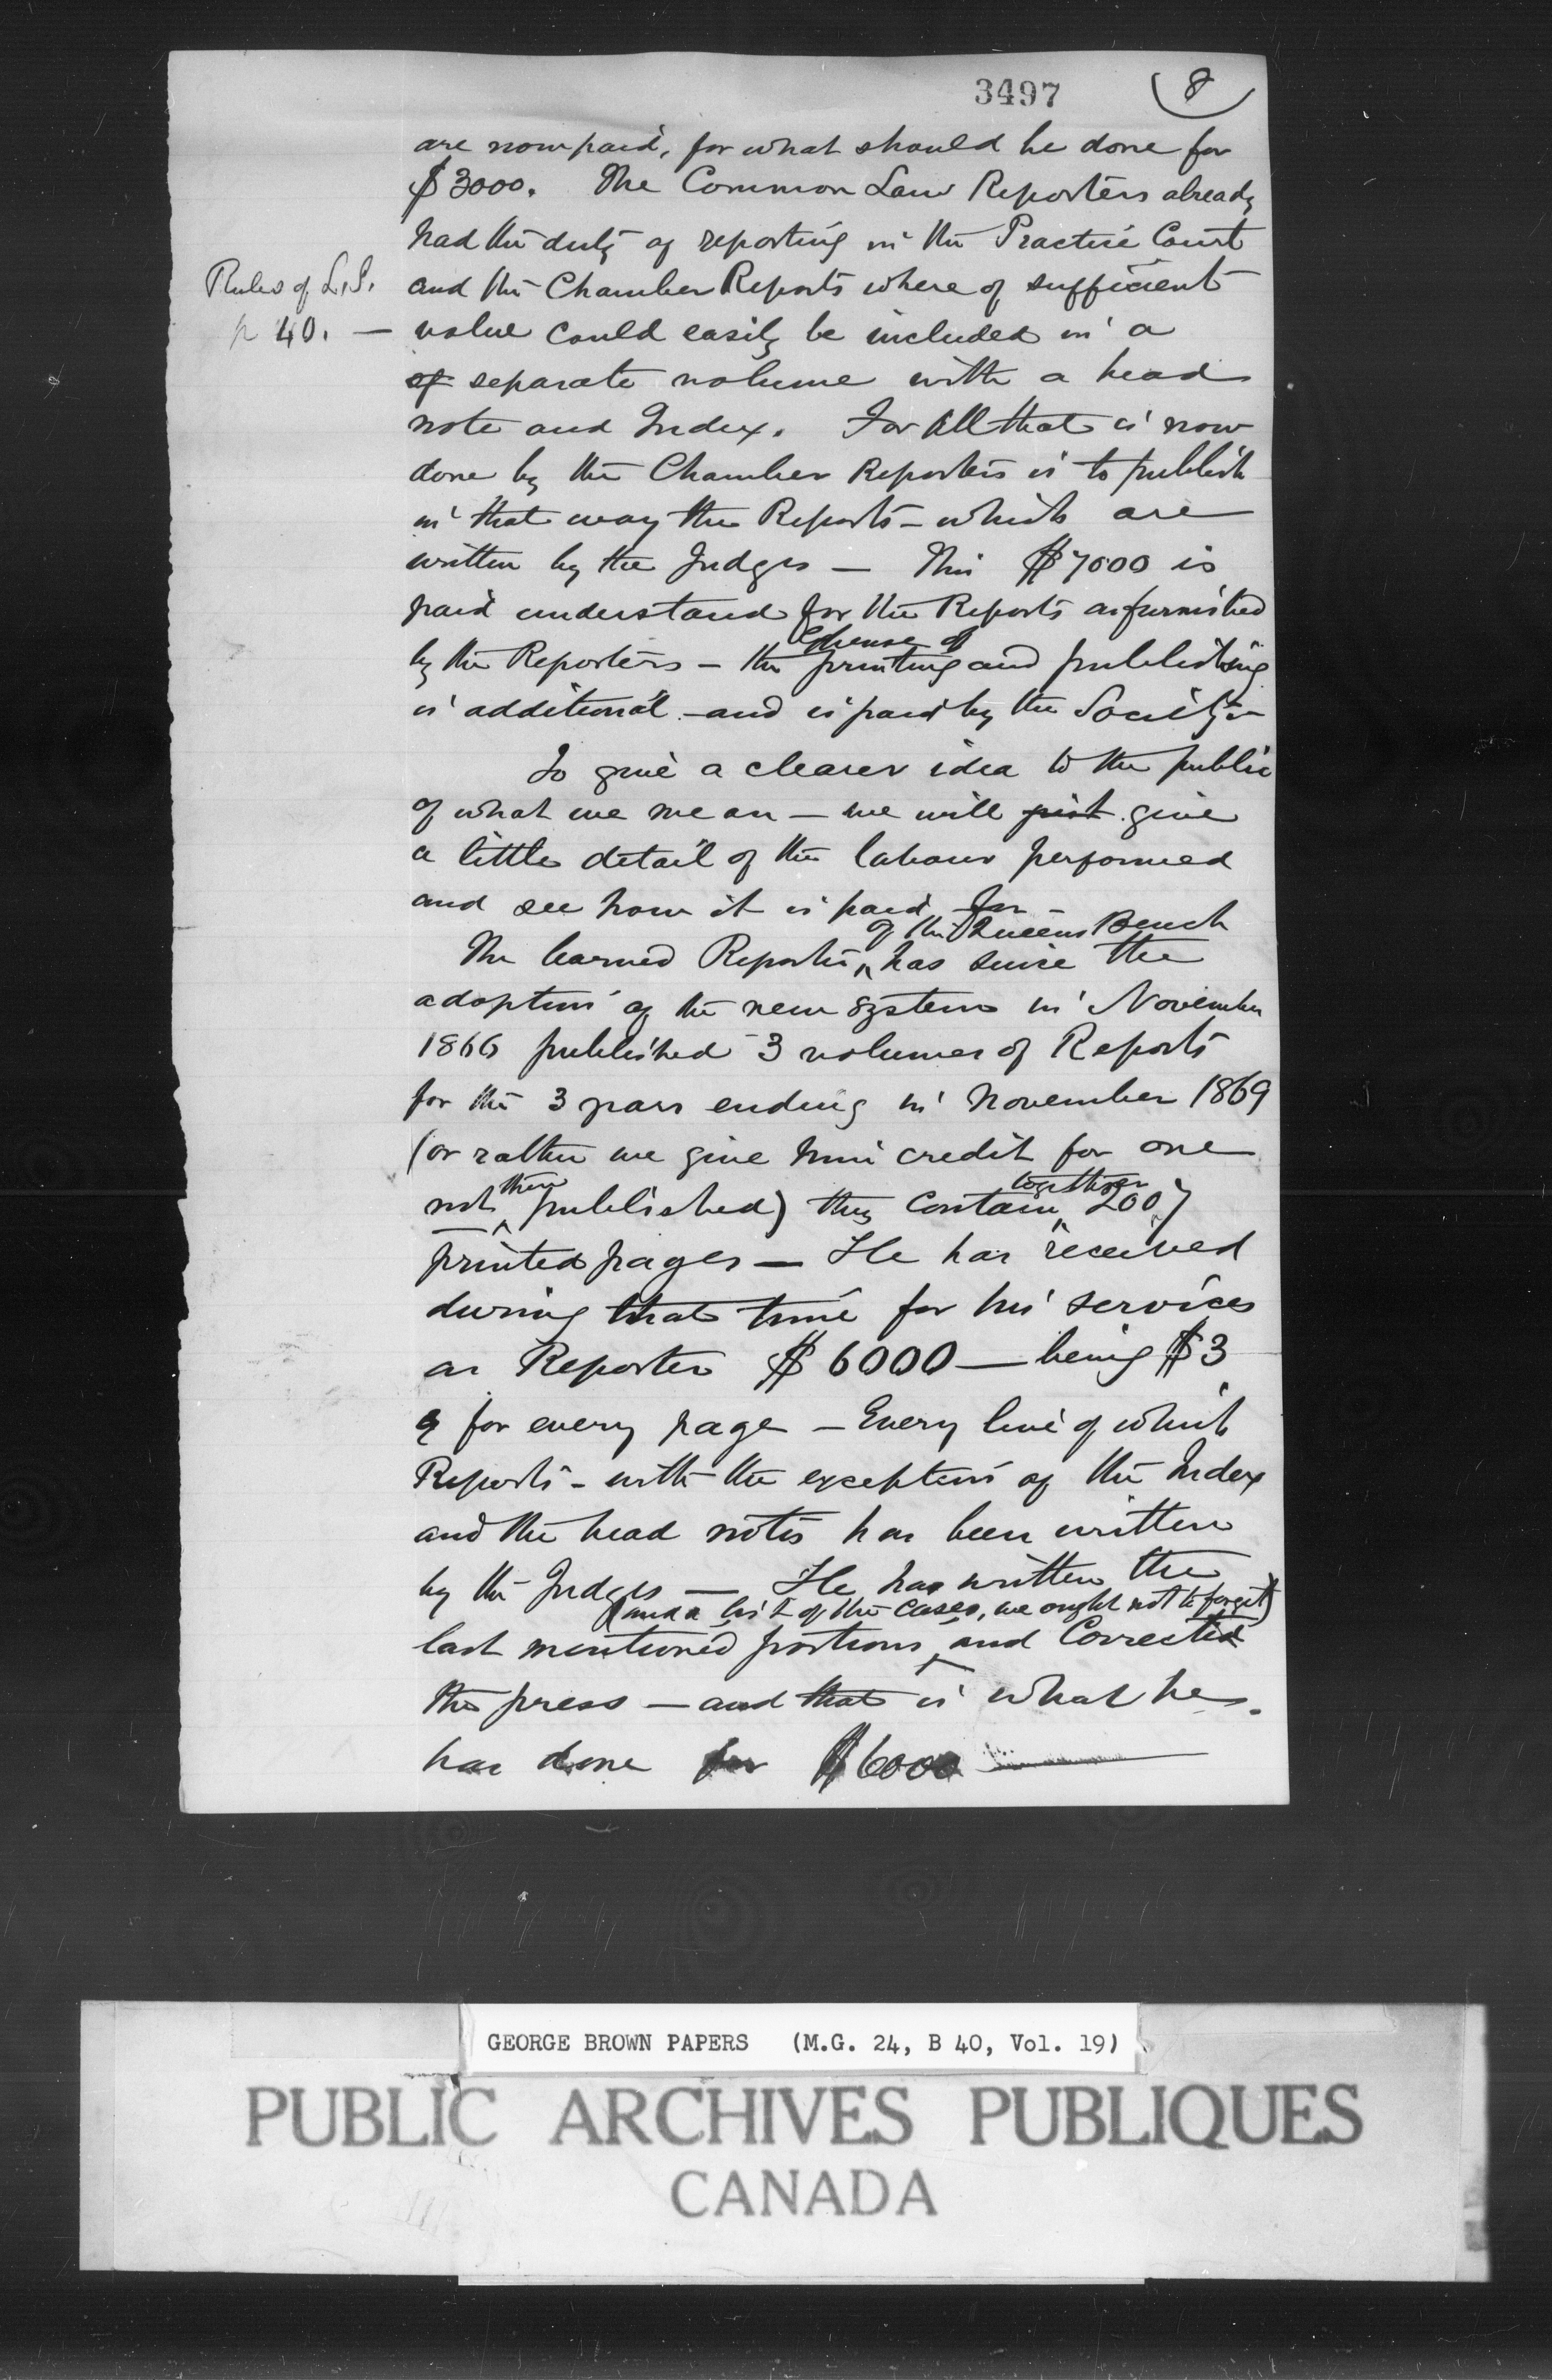 3497 8
are now paid, for what should be done for
$3000. The Common Law Reporters already
had the duty of reporting in the Practice Court
Rules of L.S. and the Chamber Reports where of sufficient
p 40. — value could easily be included in a
of separate volume with a head
note and Index. For all that is now
done by the Chamber Reporters is to publish
in that way the Reports - which are
written by the Judges — This $7000 is
paid understand for the Reports as furnished
expense of
by the Reporters — the printing and publishing
is additional - and is paid by the Society -
To give a clearer idea to the public
of what we mean — we will just give
a little detail of the labour performed
and see how it is paid for -
of the Queens Bench
The learned Reporter has since the
adoption of the new system in November
1866 published 3 volumes of Reports
for the 3 years ending in November 1869
(or rather we give him credit for one
together
not published) they contain 2007
printed pages — He has received
during that time for his services
as Reporter $6000 — being $3
for every page — Every line of which
Reports - with the exception of the Index
and the head notes has been written
by the Judges — He has written the
(and a list of the cases, we ought not to forget)
last mentioned portions and Corrected
the press — and that is what he
has done for $6000
GEORGE BROWN PAPERS (M.G. 24, B 40, Vol. 19)
PUBLIC ARCHIVES PUBLIQUES
CANADA